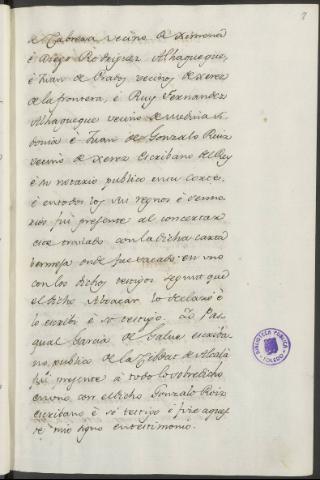 7
de Cabrera vecino de Ximena
è Diego Rodriguez Alhaqueque,
è Juan de Prados vecinos de xerez
de la frontera, è Ruy Fernandez
Alhaqueque vecino de medina si
donia è Juan de Gonzalo Ruiz
vecino de Xerez escribano del Rey
è su notario publico en su corte
è en todos los sus regnos è senno
rios fui presente al concertar
este traslado con la dicha carta
vermeja onde fue sacado en uno
con los dichos testigos segun que
el dicho Abracar lo declaró è
lo escribi è só testigo. Yo Pas
qual Garcia de Salue escriba
no publico de la Cibdat de Alcalá
fui presente à todo lo sobredicho
en uno con el dicho Gonzalo Roiz
escribano è só testigo è fize aques
te mio signo en testimonio.
BIBLIOTECA PUBLICA
TOLEDO